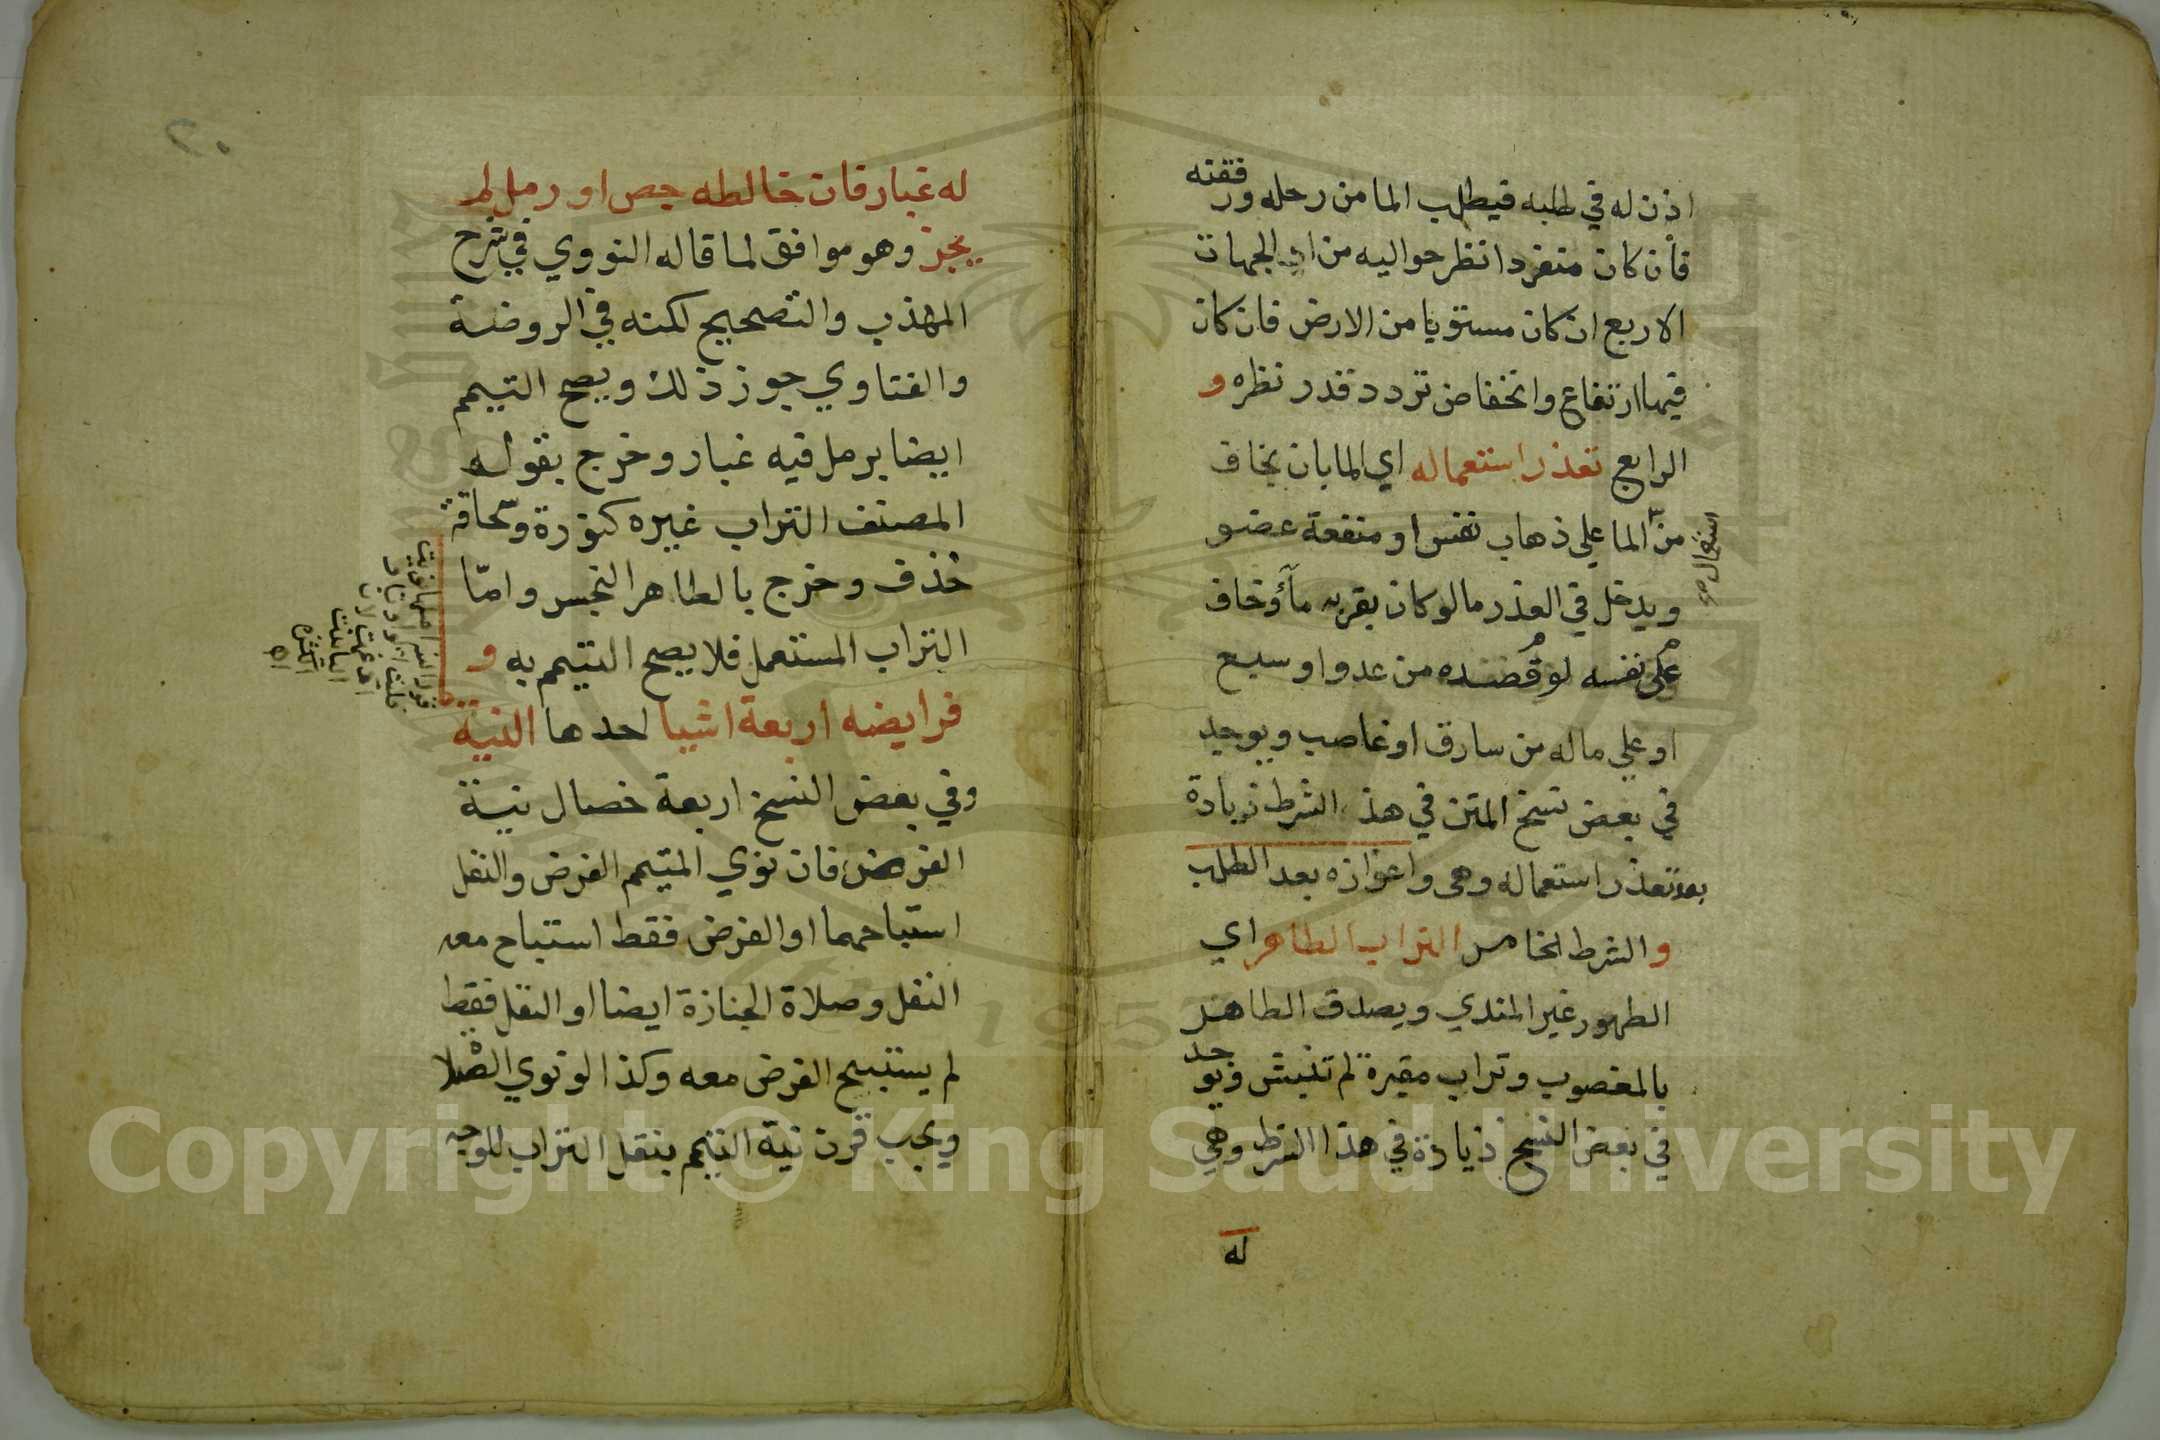 اذن له في طلبه فيطلب الما من رحله ورفقته
فأن كان منفردا نظر حواليه من الجهات
الاربع ان كان مستويا من الارض فان كان
فيها ارتفاع وانخفاض تردد قدر نظره و
الرابع تعذر استعماله اي الما بان يخاف
من الما علي ذهاب نفس او منفعة عضو
استعمال صح
ويدخل في العذر مالو كان بقربه مآ وخاف
على نفسه لو قصده من عدو او سبع
او علي ماله من سارق او غاصب ويوجد
في بعض نسخ المتن في هذا الشرط زيادة
بعد تعذر استعماله وهى واعوازه بعد الطلب
و الشرط الخامس التراب الطاهر اي
الطهور غير المندي ويصدق الطاهر
بالمغصوب وتراب مقبرة لم تنبش ويوجد
في بعض النسخ زيادة في هذا الشرط وهي
له
٢٠
له غبار فان خالطه جص او رمل لم
يجز وهو موافق لما قاله النووي في شرح
المهذب والتصحيح لكنه في الروضة
والفتاوي جوز ذلك ويصح التيمم
ايضا برمل فيه غبار وخرج بقول
المصنف التراب غيره كنورة وسحاقة
خذف وخرج بالطاهر النجس وامّا
التراب المستعمل فلا يصح التيمم به و
فرايضه اربعة اشيا احدها النية
وفي بعض النسخ اربعة خصال نية
الفرض فان نوي المتيمم الفرض والنفل
استباحهما او الفرض فقط استباح معه
النفل وصلاة الجنازة ايضا او النفل فقط
لم يستبيح الفرض معه وكذا لو نوي الصلا
ويجب قرن نية التيمم بنقل التراب للوجه
Copyright © King Saud University
1957